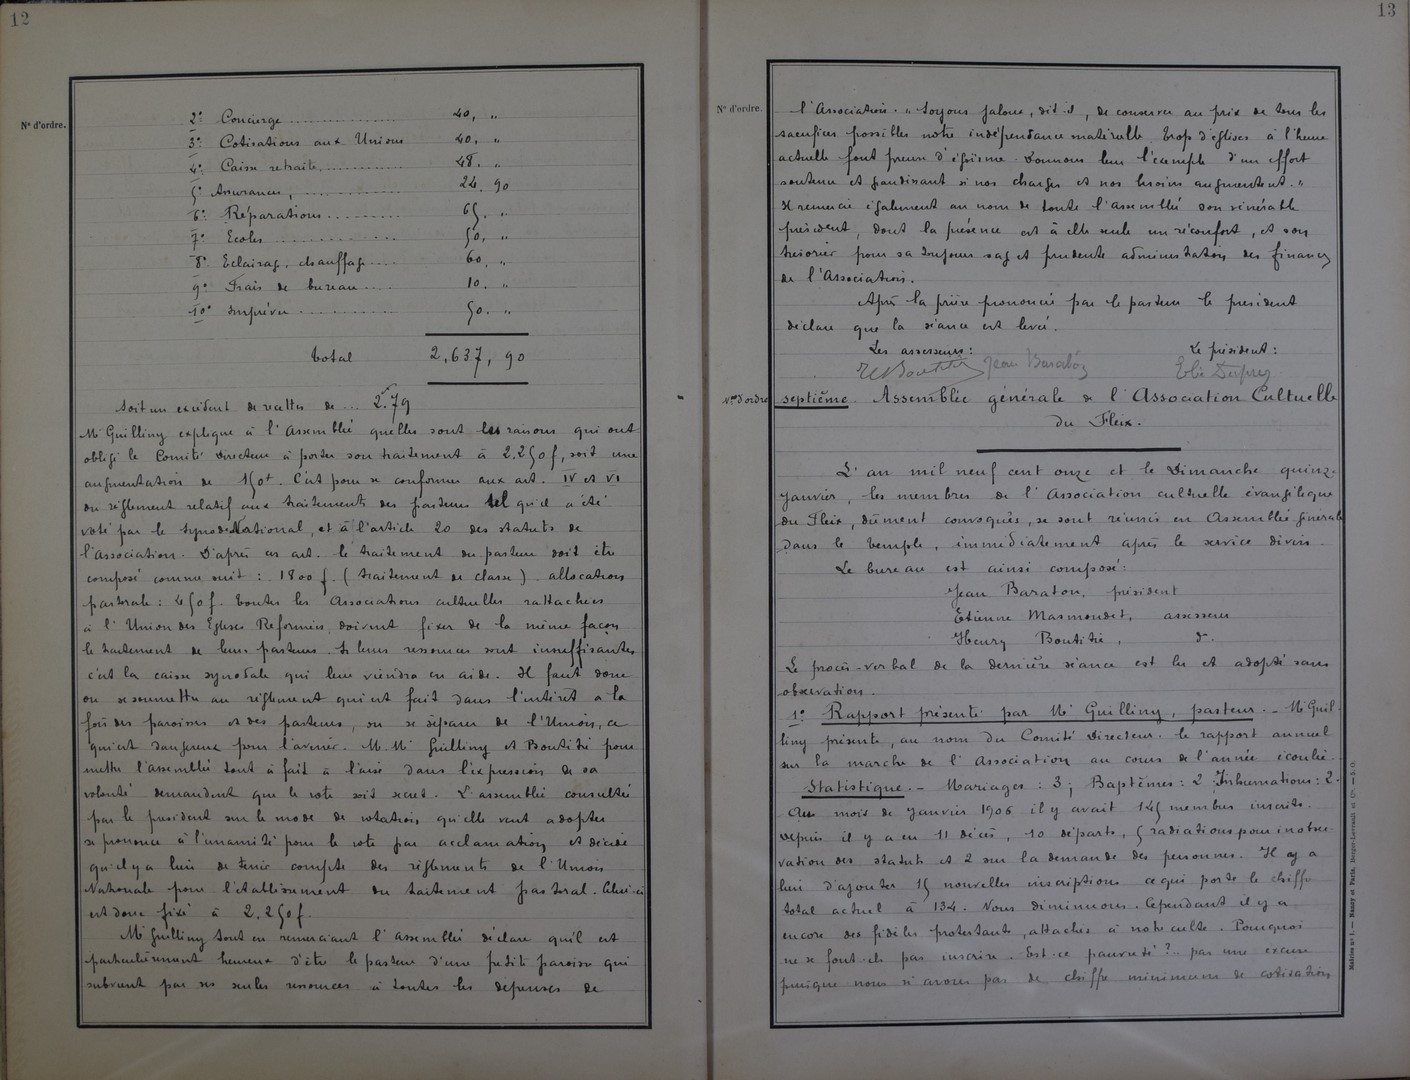 12
N° d'ordre.
2° Concierge ............ 40, "
3° Cotisations aux Unions 40, "
4° Caisse retraite, ............ 48. "
5° Assurances, ............ 24. 90
6° Réparations ......... 65. "
7° Ecoles ............ 50. "
8° Eclairag. chauffage .... 60. "
9° Frais de bureau .... 10. "
10° Imprévu ............ 50. "
total 2,637, 90
Soit un excédent de recettes de ... 2.79
Mr Guilliny explique à l'Assemblée quelles sont les raisons qui ont
obligé le Comité Directeur à porter son traitement à 2.250f, soit une
augmentation de 150f. C'est pour se conformer aux art. IV et VI
du règlement relatif aux traitements des pasteurs tel qu'il a été
voté par le Synode National, et à l'article 20 des statuts de
l'Association. D'après ces art. le traitement du pasteur doit être
composé comme suit : 1800 f. (traitement de classe) allocation
pastorale : 450f. toutes les Associations cultuelles rattachées
à l'Union des Eglises Réformées, doivent fixer de la même façon
le traitement de leurs pasteurs. Si leurs ressources sont insuffisantes
c'est la caisse synodale qui leur viendra en aide. Il faut donc
ou se soumettre au règlement qui est fait dans l'intérêt à la
fois des paroisses et des pasteurs, ou se séparer de l'Union, ce
qui est dangereux pour l'avenir. M.Mr Guilliny et Boutitié pour
mettre l'assemblée tout à fait à l'aise dans l'expression de sa
volonté demandent que le vote soit secret. L'assemblée consultée
par le président sur le mode de votation qu'elle veut adopter
se prononce à l'unanimité pour le vote par acclamation et décide
qu'il y a lieu de tenir compte des règlements de l'Union
Nationale pour l'établissement du traitement pastoral. Celui-ci
est donc fixé à 2.250f.
Mr Guilliny tout en remerciant l'assemblée déclare qu'il est
particulièrement heureux d'être le pasteur d'une petite paroisse qui
subvient par ses seules ressources à toutes les dépenses de
13
N° d'ordre.
l'Association. "Soyons jaloux, dit-il, de conserver au prix de tous les
sacrifices possibles notre indépendance matérielle. Trop d'églises à l'heure
actuelle font preuve d'égoïsme. Donnons leur l'exemple d'un effort
soutenu et grandissant si nos charges et nos besoins augmentent."
Il remercie également au nom de toute l'assemblée son vénérable
président, dont la présence est à elle seule un réconfort, et son
trésorier pour sa toujours sage et prudente administration des finances
de l'Association.
Après la prière prononcée par le pasteur le président
déclare que la séance est levée.
Les assesseurs : Le président :
H Boutitié Jean Baraton Elie Dupuy
Nos d'ordre septième. Assemblée générale de l'Association Cultuelle
du Fleix.
L'an mil neuf cent onze et le Dimanche quinze
Janvier, les membres de l'Association cultuelle évangélique
du Fleix, dûment convoqués, se sont réunis en Assemblée générale
dans le temple, immédiatement après le service divin.
Le bureau est ainsi composé :
Jean Baraton, président
Etienne Masmondet, assesseur
Henry Boutitié, d°
Le procès-verbal de la dernière séance est lu et adopté sans
observation.
1° Rapport présenté par Mr Guilliny, pasteur. - Mr Guil-
liny présente, au nom du Comité Directeur. le rapport annuel
sur la marche de l'Association au cours de l'année écoulée.
Statistique. - Mariages : 3 ; Baptêmes : 2 Inhumations : 2.
Au mois de Janvier 1906 il y avait 145 membres inscrits.
Depuis il y a eu 11 décès, 10 départs, 5 radiations pour inobser-
vation des statuts et 2 sur la demande des personnes. Il y a
lieu d'ajouter 15 nouvelles inscriptions ce qui porte le chiffre
total actuel à 134. Nous diminuons. Cependant il y a
encore des fidèles protestants, attachés à notre culte. Pourquoi
ne se font-ils pas inscrire. Est-ce pauvreté ? pas une excuse
puisque nous n'avons pas de chiffre minimum de cotisation
Modèle n° 1. — Nancy et Paris, Berger-Levrault et Cie. — S. O.